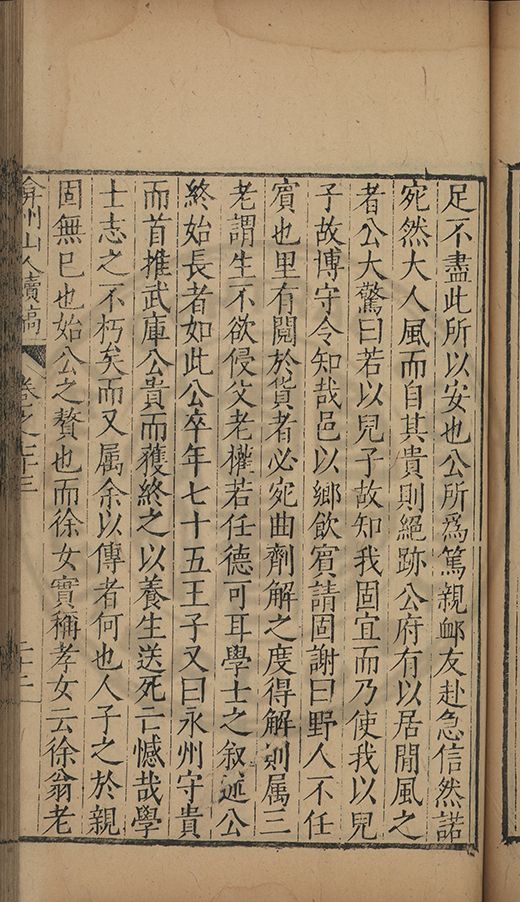 足不盡此所以安也公所爲篤親䘏友赴急信然諾
宛然大人風而自其貴則絕跡公府有以居閒風之
者公大驚曰若以兒子故知我固宜而乃使我以兒
子故博守令知哉邑以鄉飲賓請固謝曰野人不任
賓也里有鬩於貨者必宛曲劑解之度得解則属三
老謂生不欲侵父老權若任德可耳學士之叙述公
終始長者如此公卒年七十五王子又曰永州守貴
而首推武庫公貴而獲終之以養生送死亡憾哉學
士志之不朽矣而又属余以傳者何也人子之於親
固無已也始公之贅也而徐女實稱孝女云徐翁老
弇州山人續稿
卷之七十三
二十二